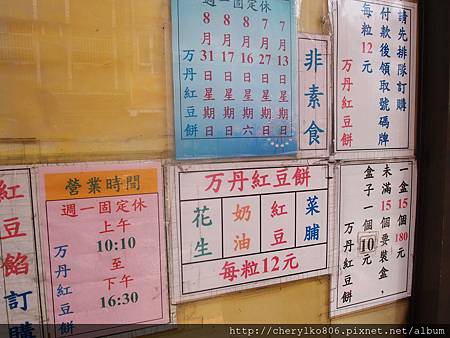 週一固定休
7月13日星期日
7月26日星期六
8月17日星期日
8月31日星期日
万丹紅豆餅
非素食
請先排隊訂購
付款後領取號碼牌
每粒12元
万丹紅豆餅
紅豆餡訂購
營業時間
週一固定休
上午
10:10
至
下午
16:30
万丹紅豆餅
万丹紅豆餅
花生
奶油
紅豆
菜脯
每粒12元
一盒15個180元
未滿15個要裝盒,
盒子一個10元
万丹紅豆餅
http://cherylko806.pixnet.net/album